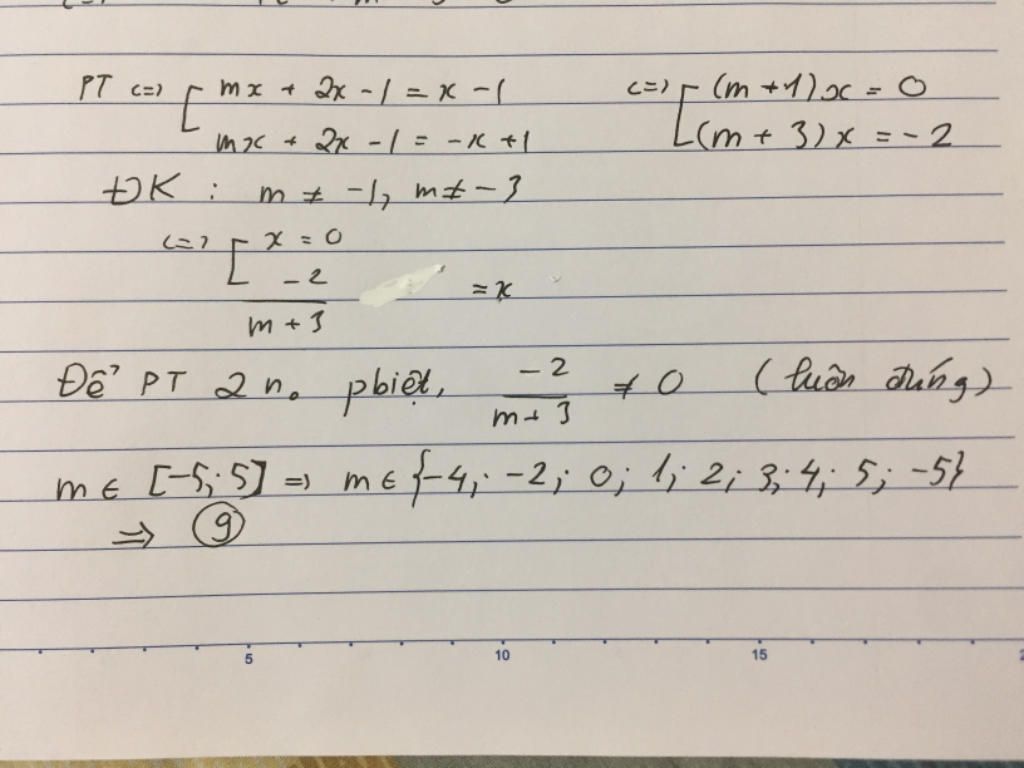 PT <=> [ mx + 2x - 1 = x - 1 <=> [ (m + 1)x = 0
mx + 2x - 1 = -x + 1 (m + 3)x = -2
ĐK : m ≠ -1, m ≠ -3
<=> [ x = 0
-2 / m + 3 = x
Để PT 2 n. pbiệt, -2 / m + 3 ≠ 0 (luôn đúng)
m ∈ [-5; 5] => m ∈ {-4; -2; 0; 1; 2; 3; 4; 5; -5}
=> 9
5 10 15